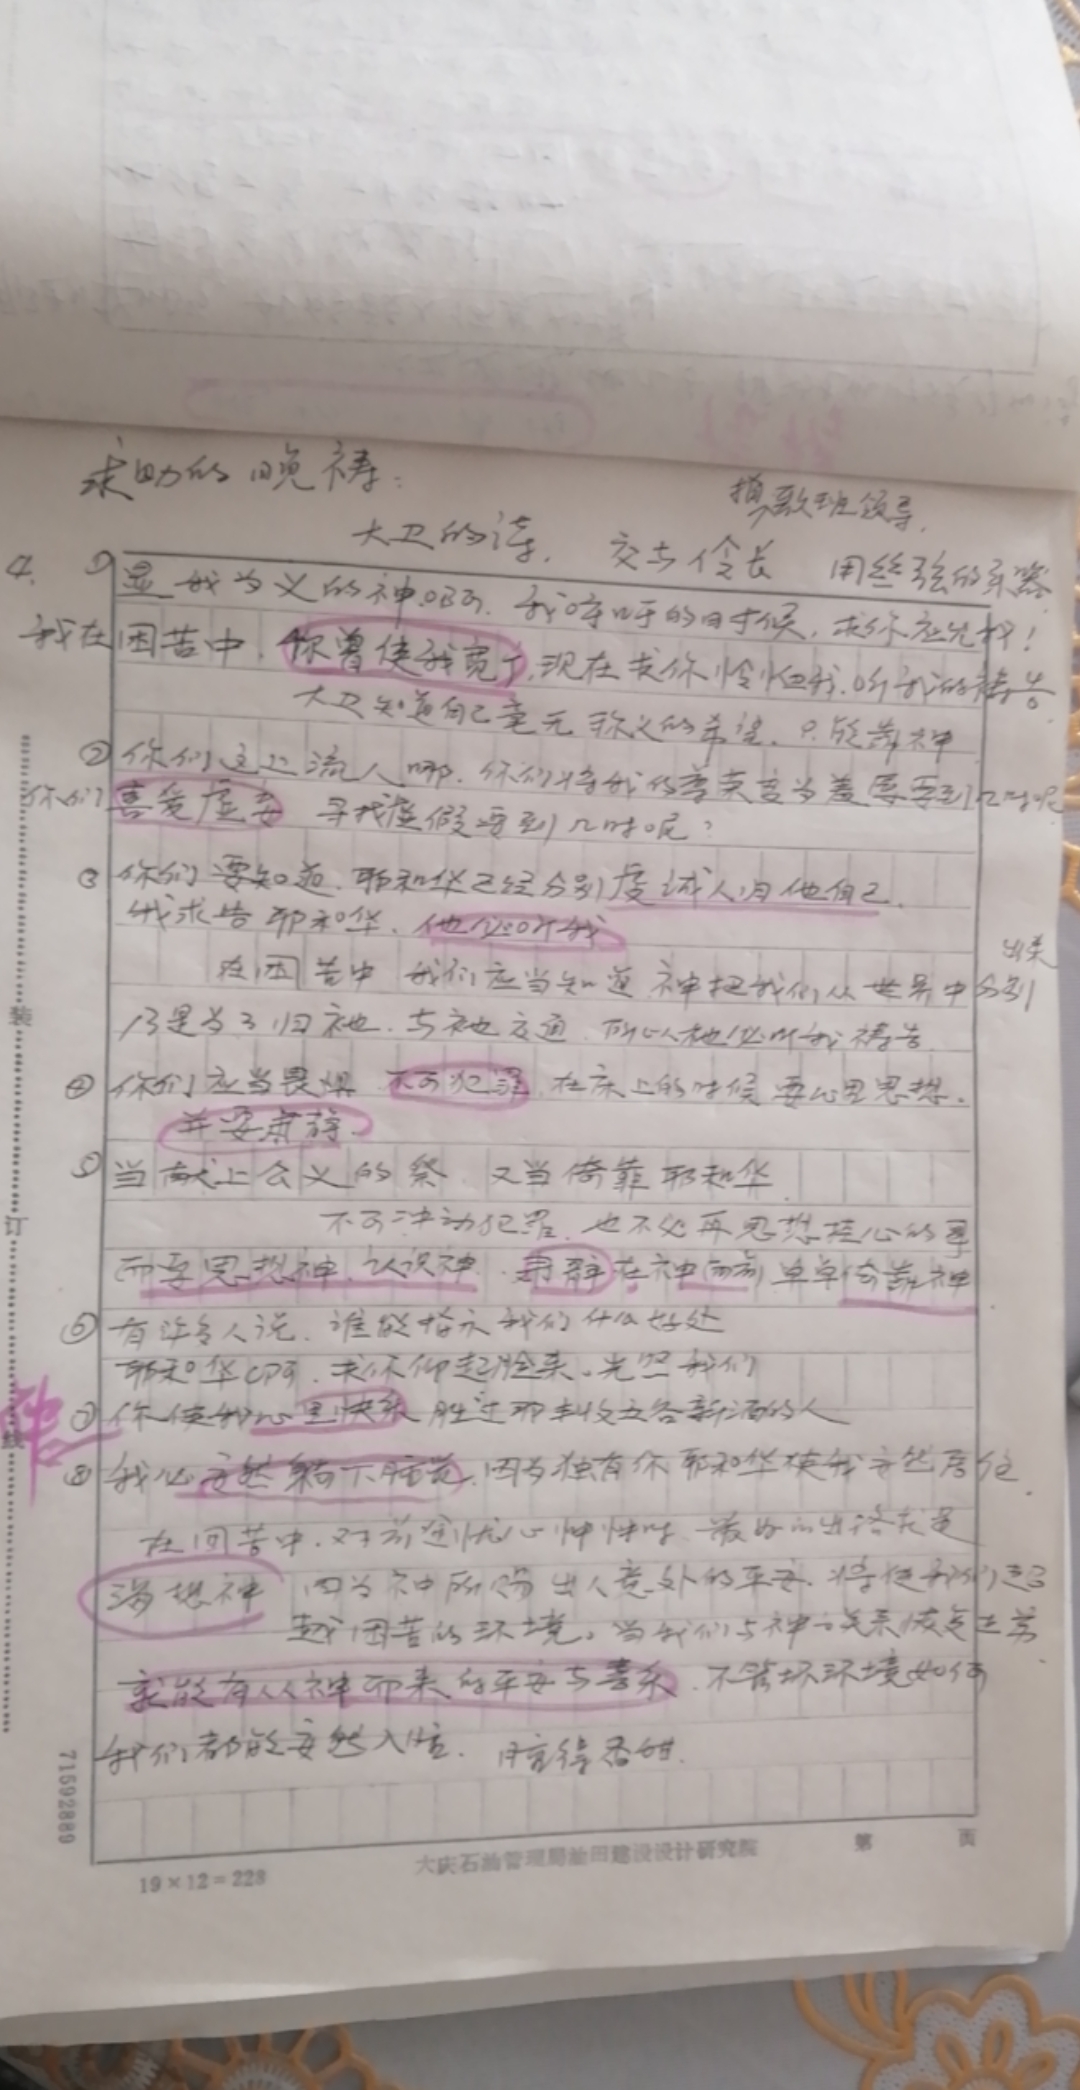 求助的晚祷:
指歌班领导.
大卫的诗. 交与伶长 用丝弦的乐器
4. ① 显我为义的神啊, 我呼吁的时候, 求你应允我!
我在困苦中, 你曾使我宽广, 现在求你怜恤我, 听我的祷告
大卫知道自己毫无称义的希望, 只能靠神
② 你们这上流人哪, 你们将我的尊荣变为羞辱要到几时呢
你们喜爱虚妄 寻找虚假要到几时呢?
③ 你们要知道, 耶和华已经分别虔诚人归他自己.
我求告耶和华, 他必听我
在困苦中 我们应当知道 神把我们从世界中分别
出来
乃是为了归祂, 与祂交通, 所以祂必听我祷告
④ 你们应当畏惧 不可犯罪, 在床上的时候 要心里思想,
并要肃静.
⑤ 当献上公义的祭, 又当倚靠耶和华
不可冲动犯罪, 也不必再思想挂心的事
而要思想神, 认识神, 肃静在神面前 单单倚靠神
⑥ 有许多人说, 谁能指示我们什么好处
耶和华啊, 求你仰起脸来, 光照我们
⑦ 你使我心里快乐 胜过那丰收五谷新酒的人
⑧ 我必安然躺下睡觉, 因为独有你耶和华使我安然居住.
在困苦中, 对前途忧心忡忡时, 最好的出路就是
思想神 因为神所赐出人意外的平安, 将使我们超
越困苦的环境, 当我们与神的关系恢复正常
就能有从神而来的平安与喜乐, 不管环境如何
我们都能安然入睡, 睡得香甜.
神
装
订
线
71592889
19×12=228
大庆石油管理局油田建设设计研究院
第 页